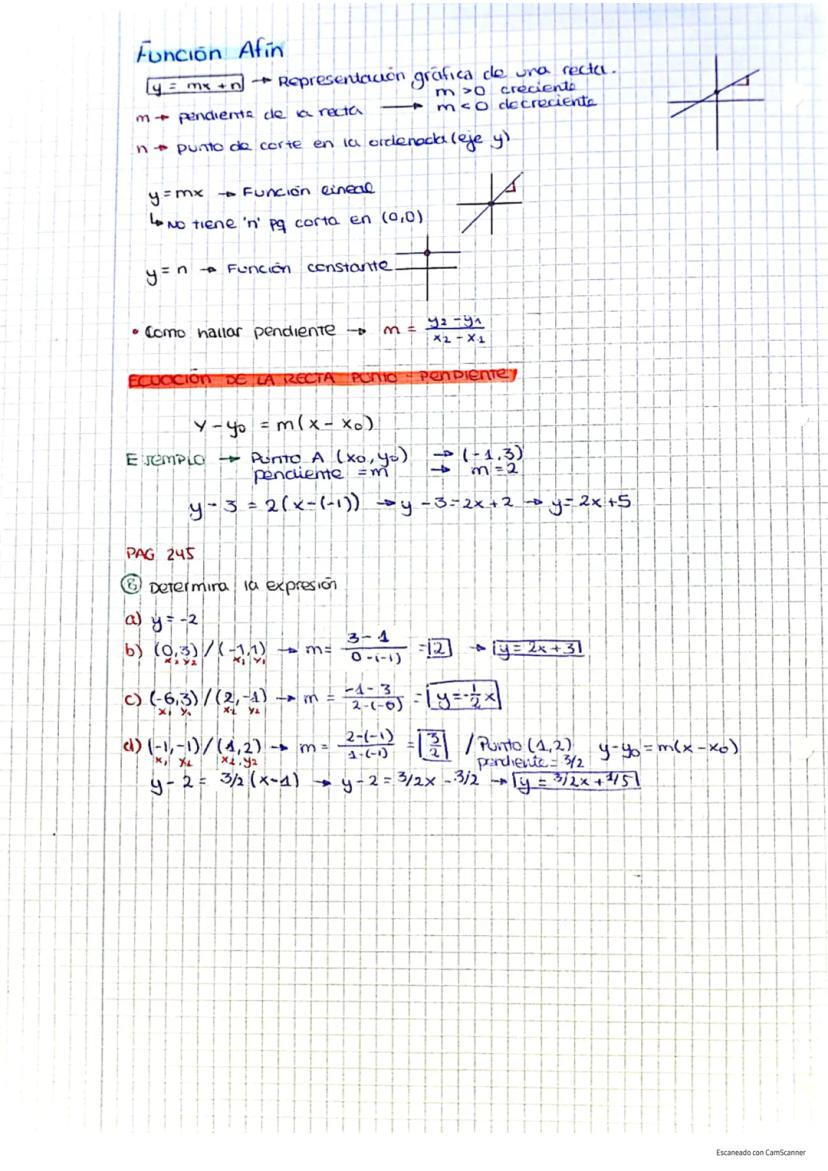 Función Afín
y = mx + n → Representación gráfica de una recta.
m > 0 creciente
m → pendiente de la recta → m < 0 decreciente
n → punto de corte en la ordenada (eje y)
y = mx → Función lineal
↳ No tiene 'n' pq corta en (0,0)
y = n → Función constante
• Como hallar pendiente → m = y₂ - y₁ / x₂ - x₁
ECUACIÓN DE LA RECTA PUNTO - PENDIENTE
y - y₀ = m(x - x₀)
EJEMPLO → Punto A (x₀, y₀) → (-1,3)
pendiente = m → m = 2
y - 3 = 2(x-(-1)) → y - 3 = 2x + 2 → y = 2x + 5
PAG 245
⑧ Determina la expresión
a) y = -2
b) (0,3) / (-1,1) → m = 3 - 1 / 0 - (-1) = 2 → y = 2x + 3
x₂ y₂ x₁ y₁
c) (-6,3) / (2,-1) → m = -1 - 3 / 2 - (-6) = y = -1/2 x
x₁ y₁ x₂ y₂
d) (-1,-1) / (1,2) → m = 2-(-1) / 1-(-1) = 3/2 / Punto (1,2) y - y₀ = m(x - x₀)
pendiente = 3/2
y - 2 = 3/2 (x - 1) → y - 2 = 3/2x - 3/2 → y = 3/2x + 1/5
Escaneado con CamScanner